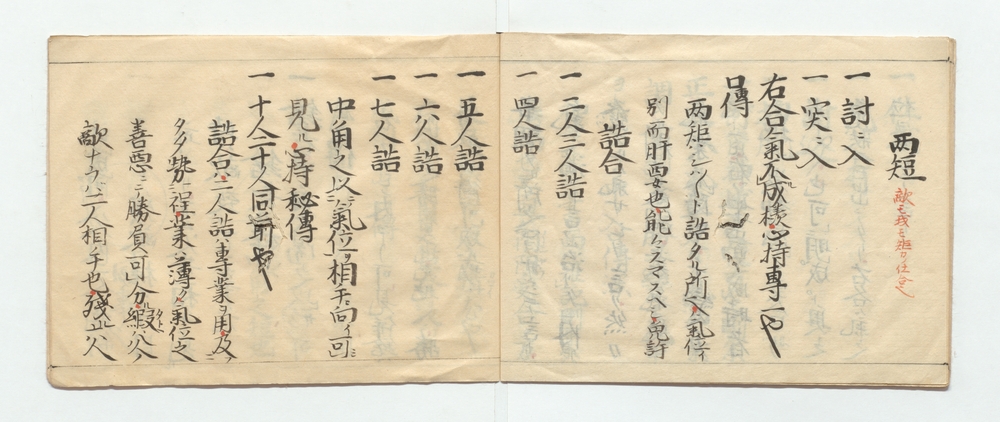 両短 敵モ我モ短刀ノ仕合
一 討ニ入
一 突ニ入
右合氣不成樣心持專一也
口傳
両短ニシツ〳〵ト詰タル所ヘ入氣位
別而肝要也能々スマスヘシ免許
詰合
一 四人詰
一 二人三人詰
一 五人詰
一 六人詰
一 七人詰
中角之以氣位ヲ相手ニ向イ可
見心持秘傳
一 十人二十人同前也
詰合ハ二人詰ハ專業ヲ用及
多勢程業ハ薄ク氣位之
善悪ニテ勝負可分假令八人
敵ナラハ二人相手也殘